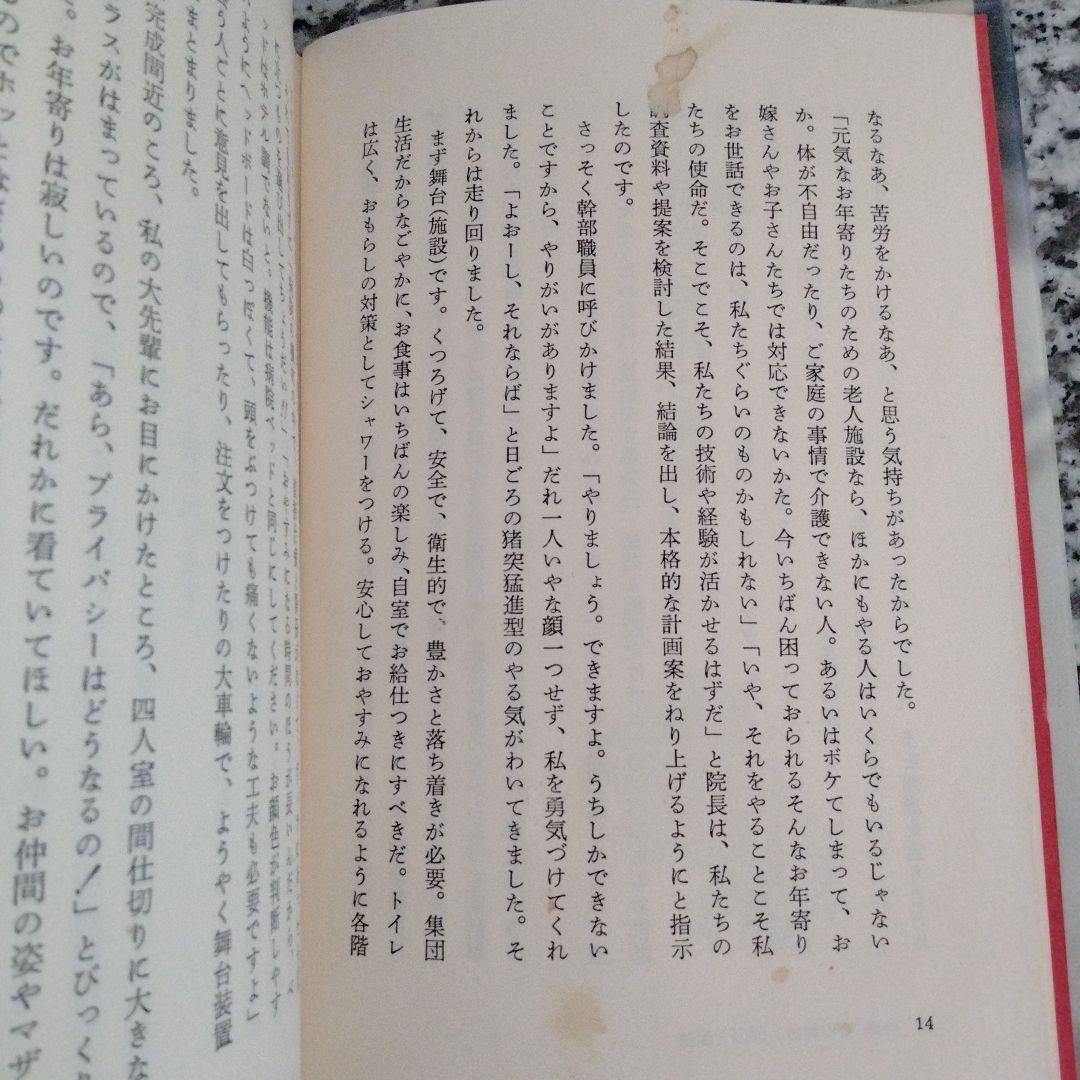 なるなあ、苦労をかけるなあ、と思う気持ちがあったからでした。
「元気なお年寄りたちのための老人施設なら、ほかにもやる人はいくらでもいるじゃない
か。体が不自由だったり、ご家庭の事情で介護できない人。あるいはボケてしまって、お
嫁さんやお子さんたちでは対応できないかた。今いちばん困っておられるそんなお年寄り
をお世話できるのは、私たちぐらいのものかもしれない」「いや、それをやることこそ私
たちの使命だ。そこでこそ、私たちの技術や経験が活かせるはずだ」と院長は、私たちの
調査資料や提案を検討した結果、結論を出し、本格的な計画案をねり上げるようにと指示
したのです。
さっそく幹部職員に呼びかけました。「やりましょう。できますよ。うちしかできない
ことですから、やりがいがありますよ」だれ一人いやな顔一つせず、私を勇気づけてくれ
ました。「よおーし、それならば」と日ごろの猪突猛進型のやる気がわいてきました。そ
れからは走り回りました。
まず舞台(施設)です。くつろげて、安全で、衛生的で、豊かさと落ち着きが必要。集団
生活だからなごやかに、お食事はいちばんの楽しみ、自室でお給仕つきにすべきだ。トイレ
は広く、おもらしの対策としてシャワーをつける。安心しておやすみになれるように各階
14
ッドはホテル調でないと。機能は病院ベッドと同じにしてください。お顔色が判断しやす
いようにヘッドボードは白っぽくて、頭をぶつけても痛くないような工夫も必要ですよ」
違う人ごとに意見を出してもらったり、注文をつけたりの大車輪で、ようやく舞台装置
まとまりました。
完成間近のころ、私の大先輩にお目にかけたところ、四人室の間仕切りに大きな
ラスがはまっているので、「あら、プライバシーはどうなるの！」とびっくり
。お年寄りは寂しいのです。だれかに看ていてほしい。お仲間の姿やマザ